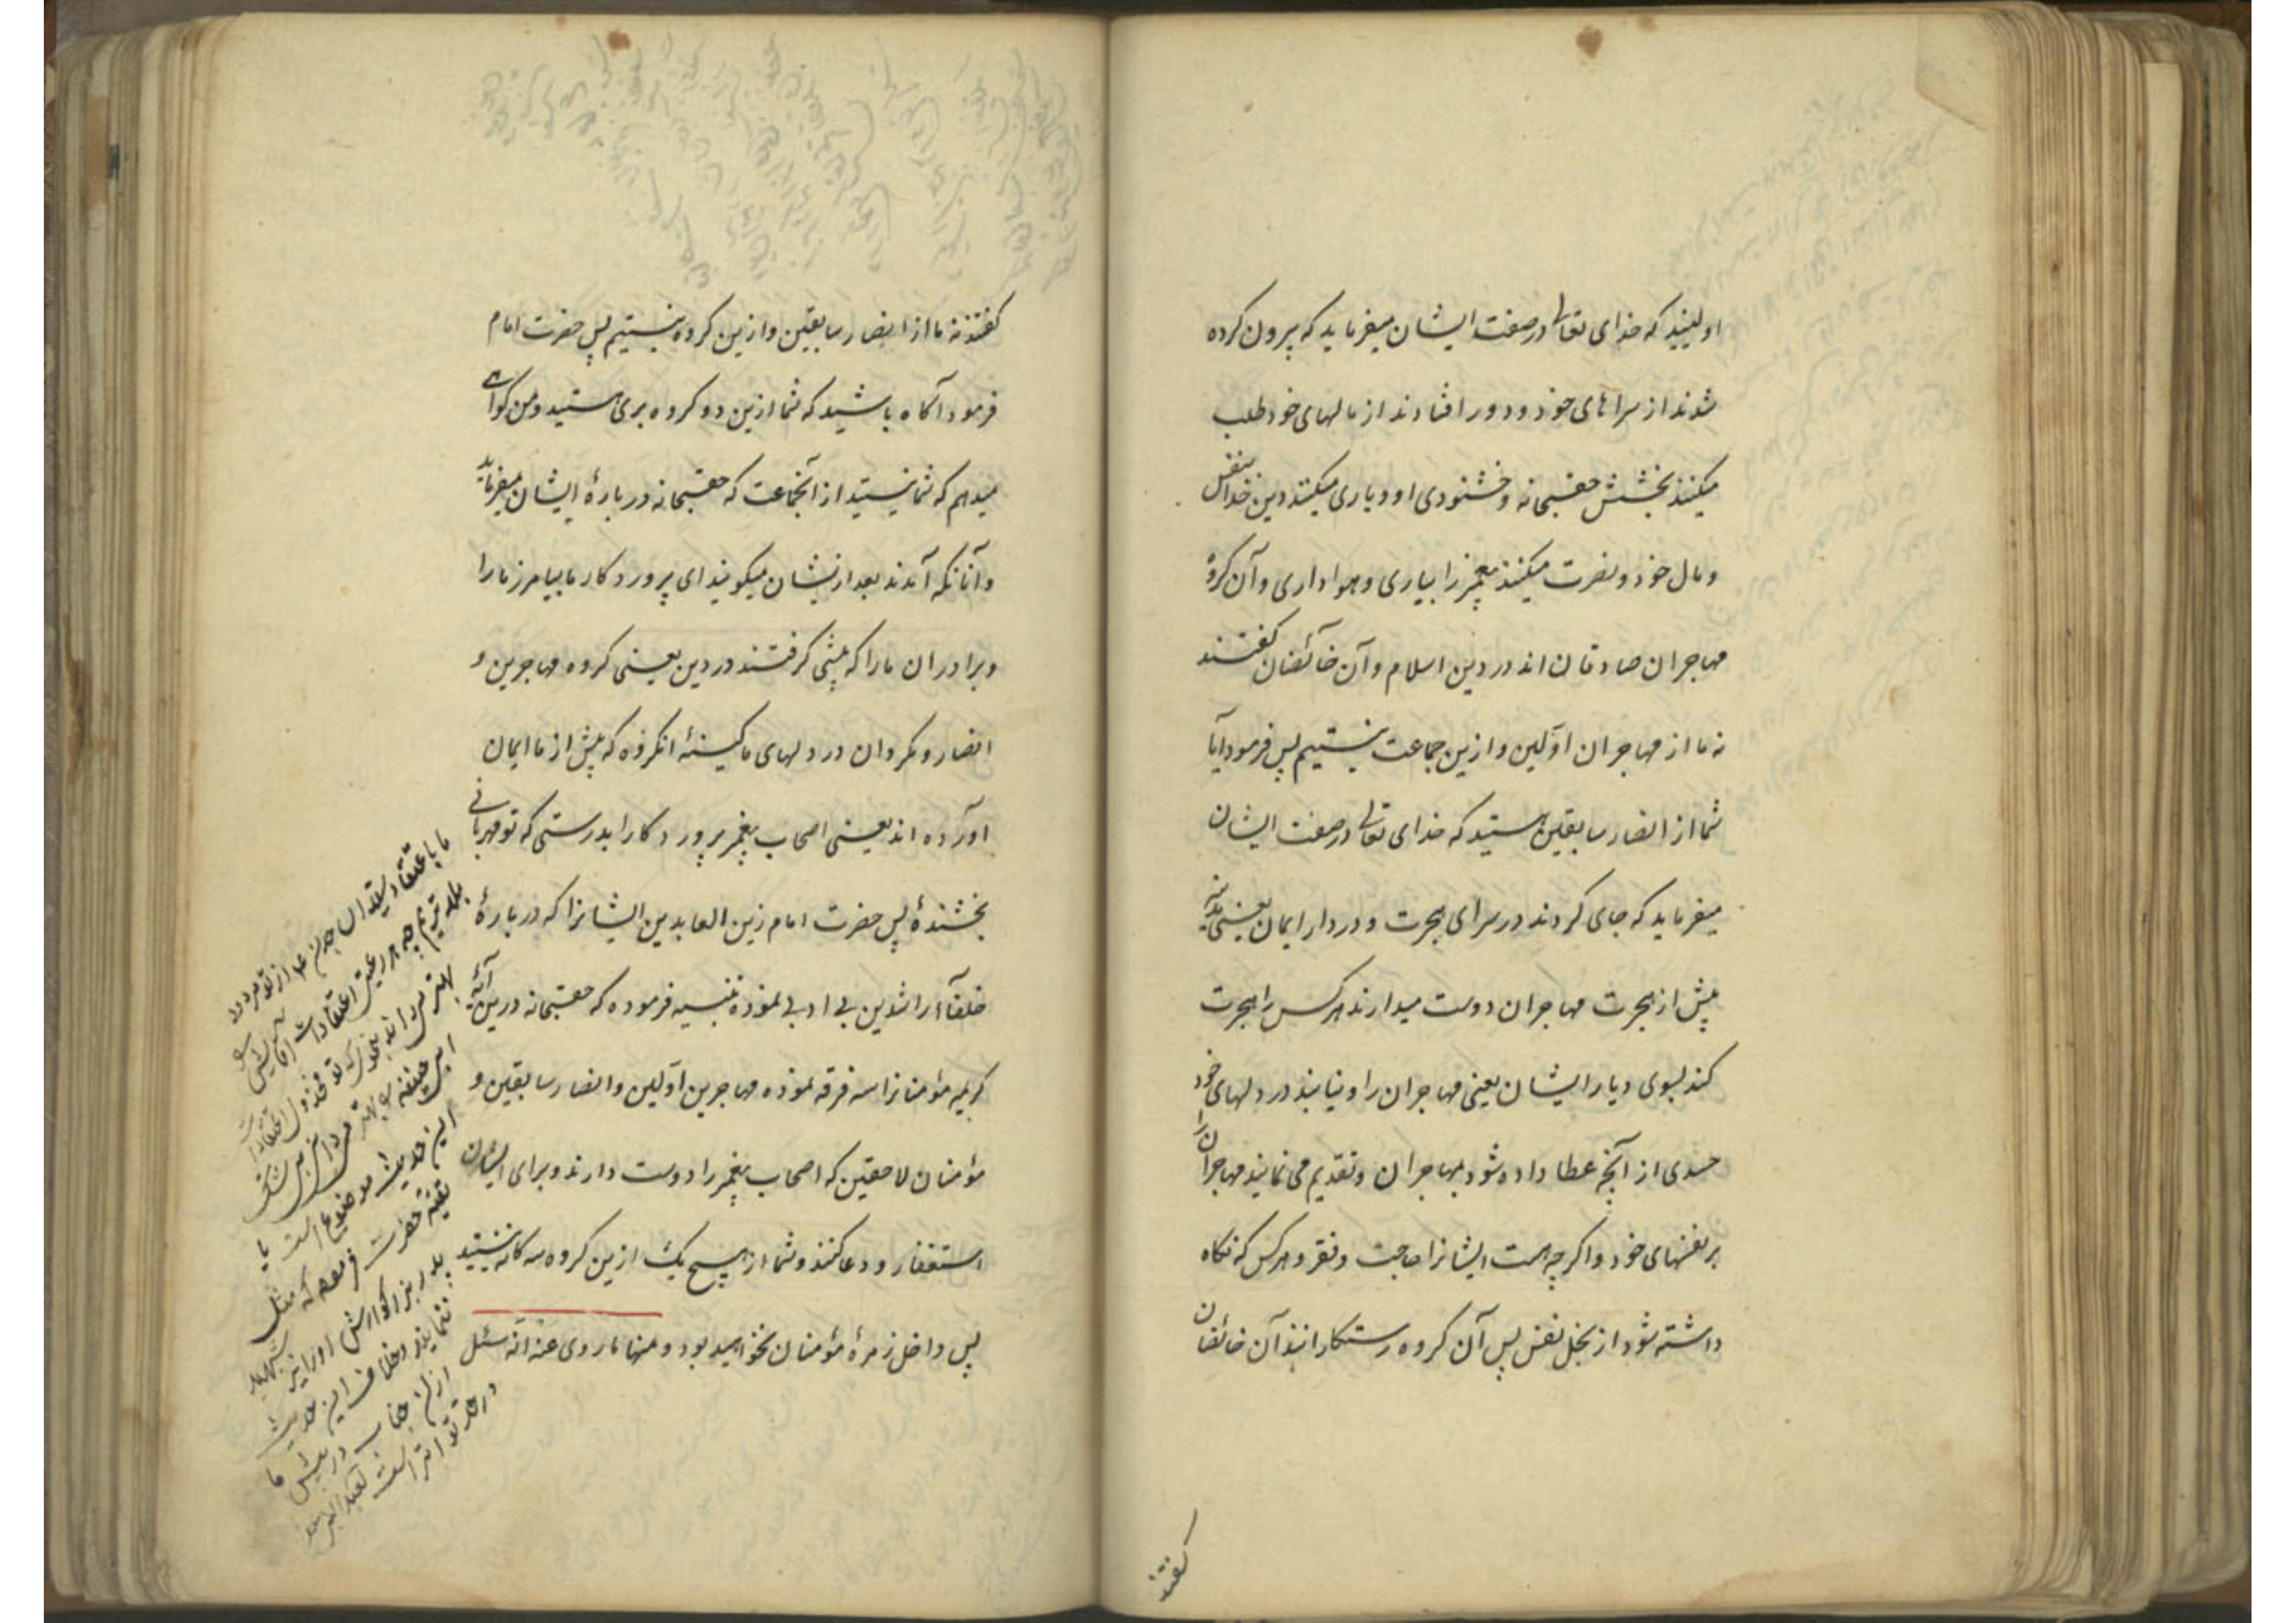 اولیید که خدای تعالی در صفت ایشان میفرماید که بیرون کرده
شدند از سراهای خود و دور افتادند از مالهای خود طلب
میکنند بخشش حقسبحانه و خشنودی او و یاری میکنند دین خدا بنفس
و مال خود و نصرت میکنند پیغمبر را بیاری و هواداری و آن گروه
مهاجران صادقان اند در دین اسلام و آن خائضان گفتند
نه ما از مهاجران اوّلین و ازین جماعت نیستیم پس فرمود آیا
شما از انصار سابقین هستید که خدای تعالی در صفت ایشان
میفرماید که جای کردند در سرای هجرت و در دار ایمان یعنی مدینه
پیش از هجرت مهاجران دوست میدارند هر کس را هجرت
کند بسوی دیار ایشان یعنی مهاجران را و نیابند در دلهای خود
حسدی از آنچه عطا داده شود بمهاجران و تقدیم می نمایند مهاجران را
بر نفسهای خود و اگر چه هست ایشانرا حاجت و فقر و هر کس که نگاه
داشته شود از بخل نفس پس آن گروه رستگارانند آن خائضان
گفتند
گفتند نه ما از انصار سابقین و ازین گروه نیستیم پس حضرت امام
فرمود آگاه باشید که شما ازین دو گروه بری هستید و من گواهی
میدهم که شما نیستید از آنجماعت که حقسبحانه در بارهٔ ایشان میفرماید
و آنانکه آمدند بعد ازیشان میگویند ای پروردگار ما بیامرز ما را
و برادران ما را که پیشی گرفتند در دین یعنی گروه مهاجرین و
انصار و مگردان در دلهای ما کینهٔ انگروه که پیش از ما ایمان
آورده اند یعنی اصحاب پیغمبر پروردگارا بدرستی که تو مهربانی
بخشندهٔ پس حضرت امام زین العابدین ایشانرا که در بارهٔ
خلفآء راشدین بی ادبی نموده تنبیه فرموده که حقسبحانه درین آیهٔ
کریمه مؤمنانرا سه فرقه نموده مهاجرین اوّلین و انصار سابقین و
مؤمنان لاحقین که اصحاب پیغمبر را دوست دارند و برای ایشان
استغفار و دعا کنند و شما از هیچ یک ازین گروه سه گانه نیستید
پس داخل زمرهٔ مؤمنان نخواهید بود و منها ما روی عنه انّه سئل
ما با اعتقاد
این حدیث موضوع است یا
تقیّه حضرت فرموده که مثل
پدر بزرگوارش او را نیز شهید
ننمایند و خلاف این حدیث
از آن جناب در پیش ما
در حد تواتر است